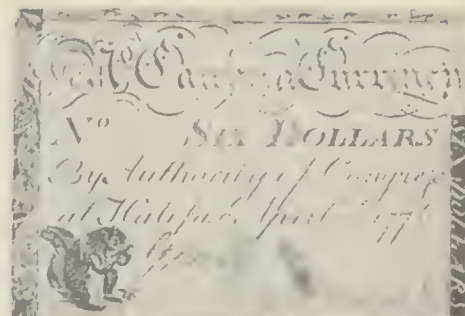 Nº Carolina Currency
Nº Six Dollars
By Authority of Congress
at Halifax April
SIX DOLLARS